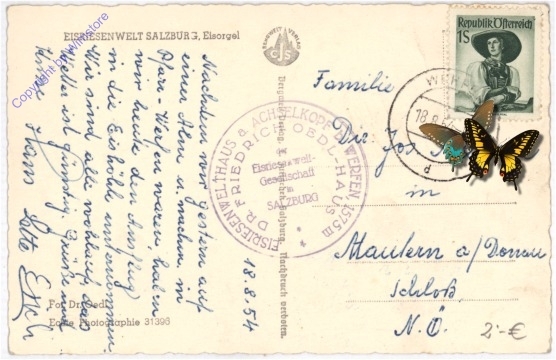 EISRIESENWELT SALZBURG, Eisorgel
Copyright by Wiristore
BERGWELT VERLAG
CJS
Republik Österreich
1S
WERFEN
18.8.54
Familie
Dir. Jos.
in
Mautern a/Donau
Schloß
N.Ö.
2.-€
EISRIESENWELTHAUS a. ACHSELKOPF b. WERFEN 1575 m
DR. FRIEDRICH OEDL-HAUS
Eisriesenwelt-
Gesellschaft
in
SALZBURG
18.8.54
Nachdem wir gestern auf
einer Alm u. nachm. in
Pfarr-Werfen waren, haben
wir heute den Ausflug
in die Eishöhle unternommen.
Wir sind alle wohlauf, das
Wetter ist günstig. Grüße und
Hans
Fot. Dr. Oedl
Echte Photographie 31396
Nachdruck verboten.